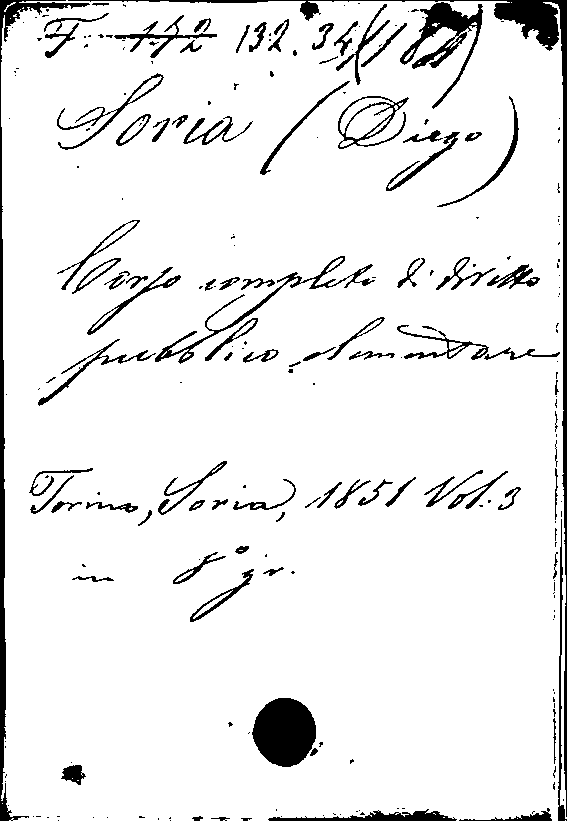 F. 172 132. 34
Soria (Diego)
Corso completo di diritto
pubblico elementare
Torino, Soria, 1851 Vol. 3
in 8° gr.